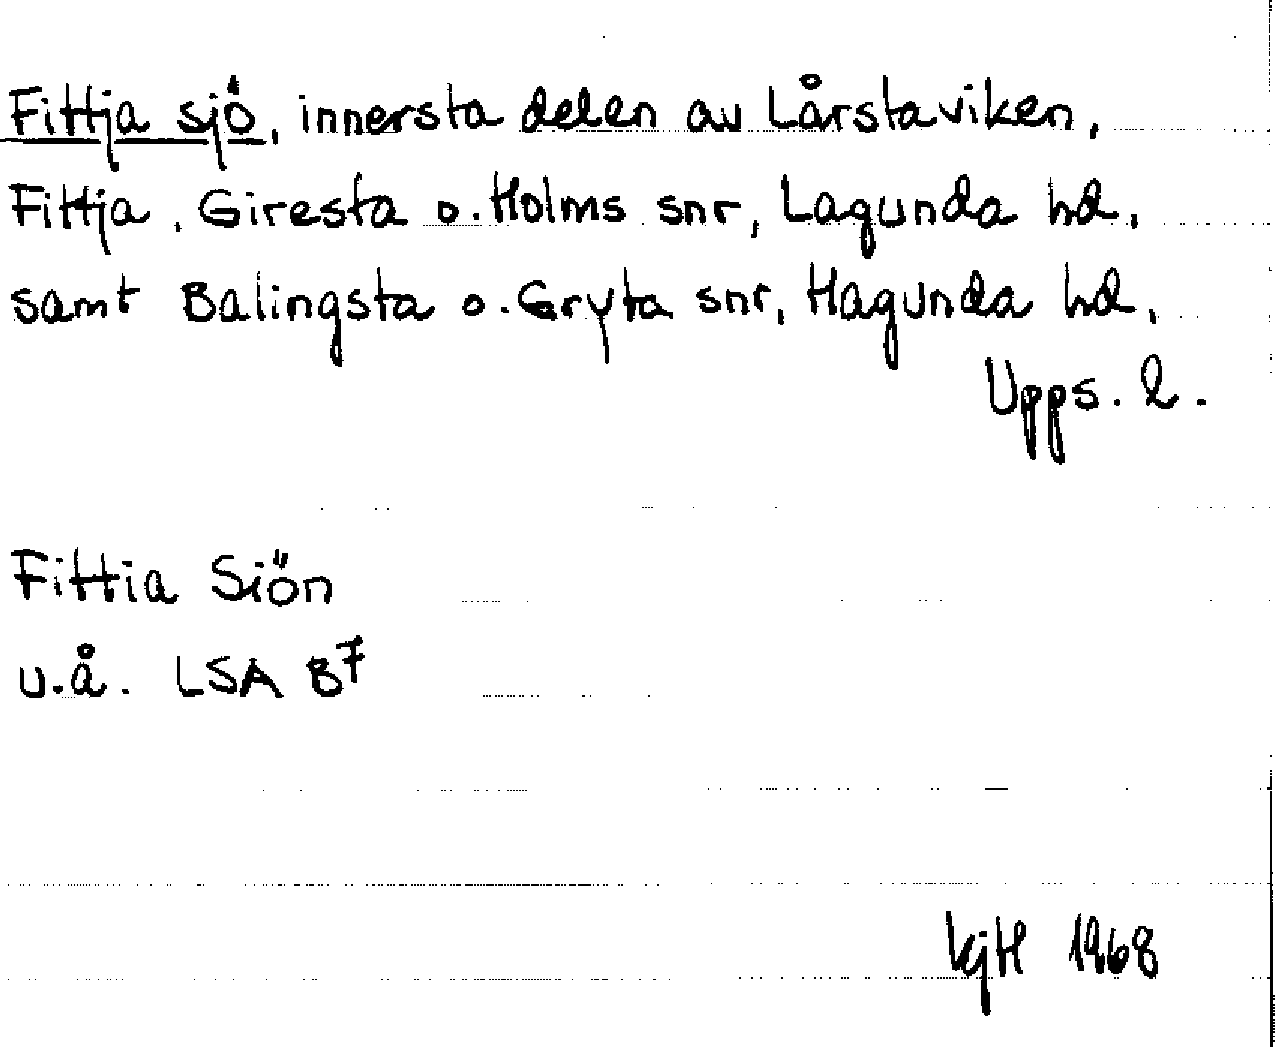 Fittja sjö, innersta delen av Lårstaviken,
Fittja, Giresta o. Holms snr, Lagunda hd,
samt Balingsta o. Gryta snr, Hagunda hd,
Upps. l.
Fittia Siön
u.å. LSA B7
1968